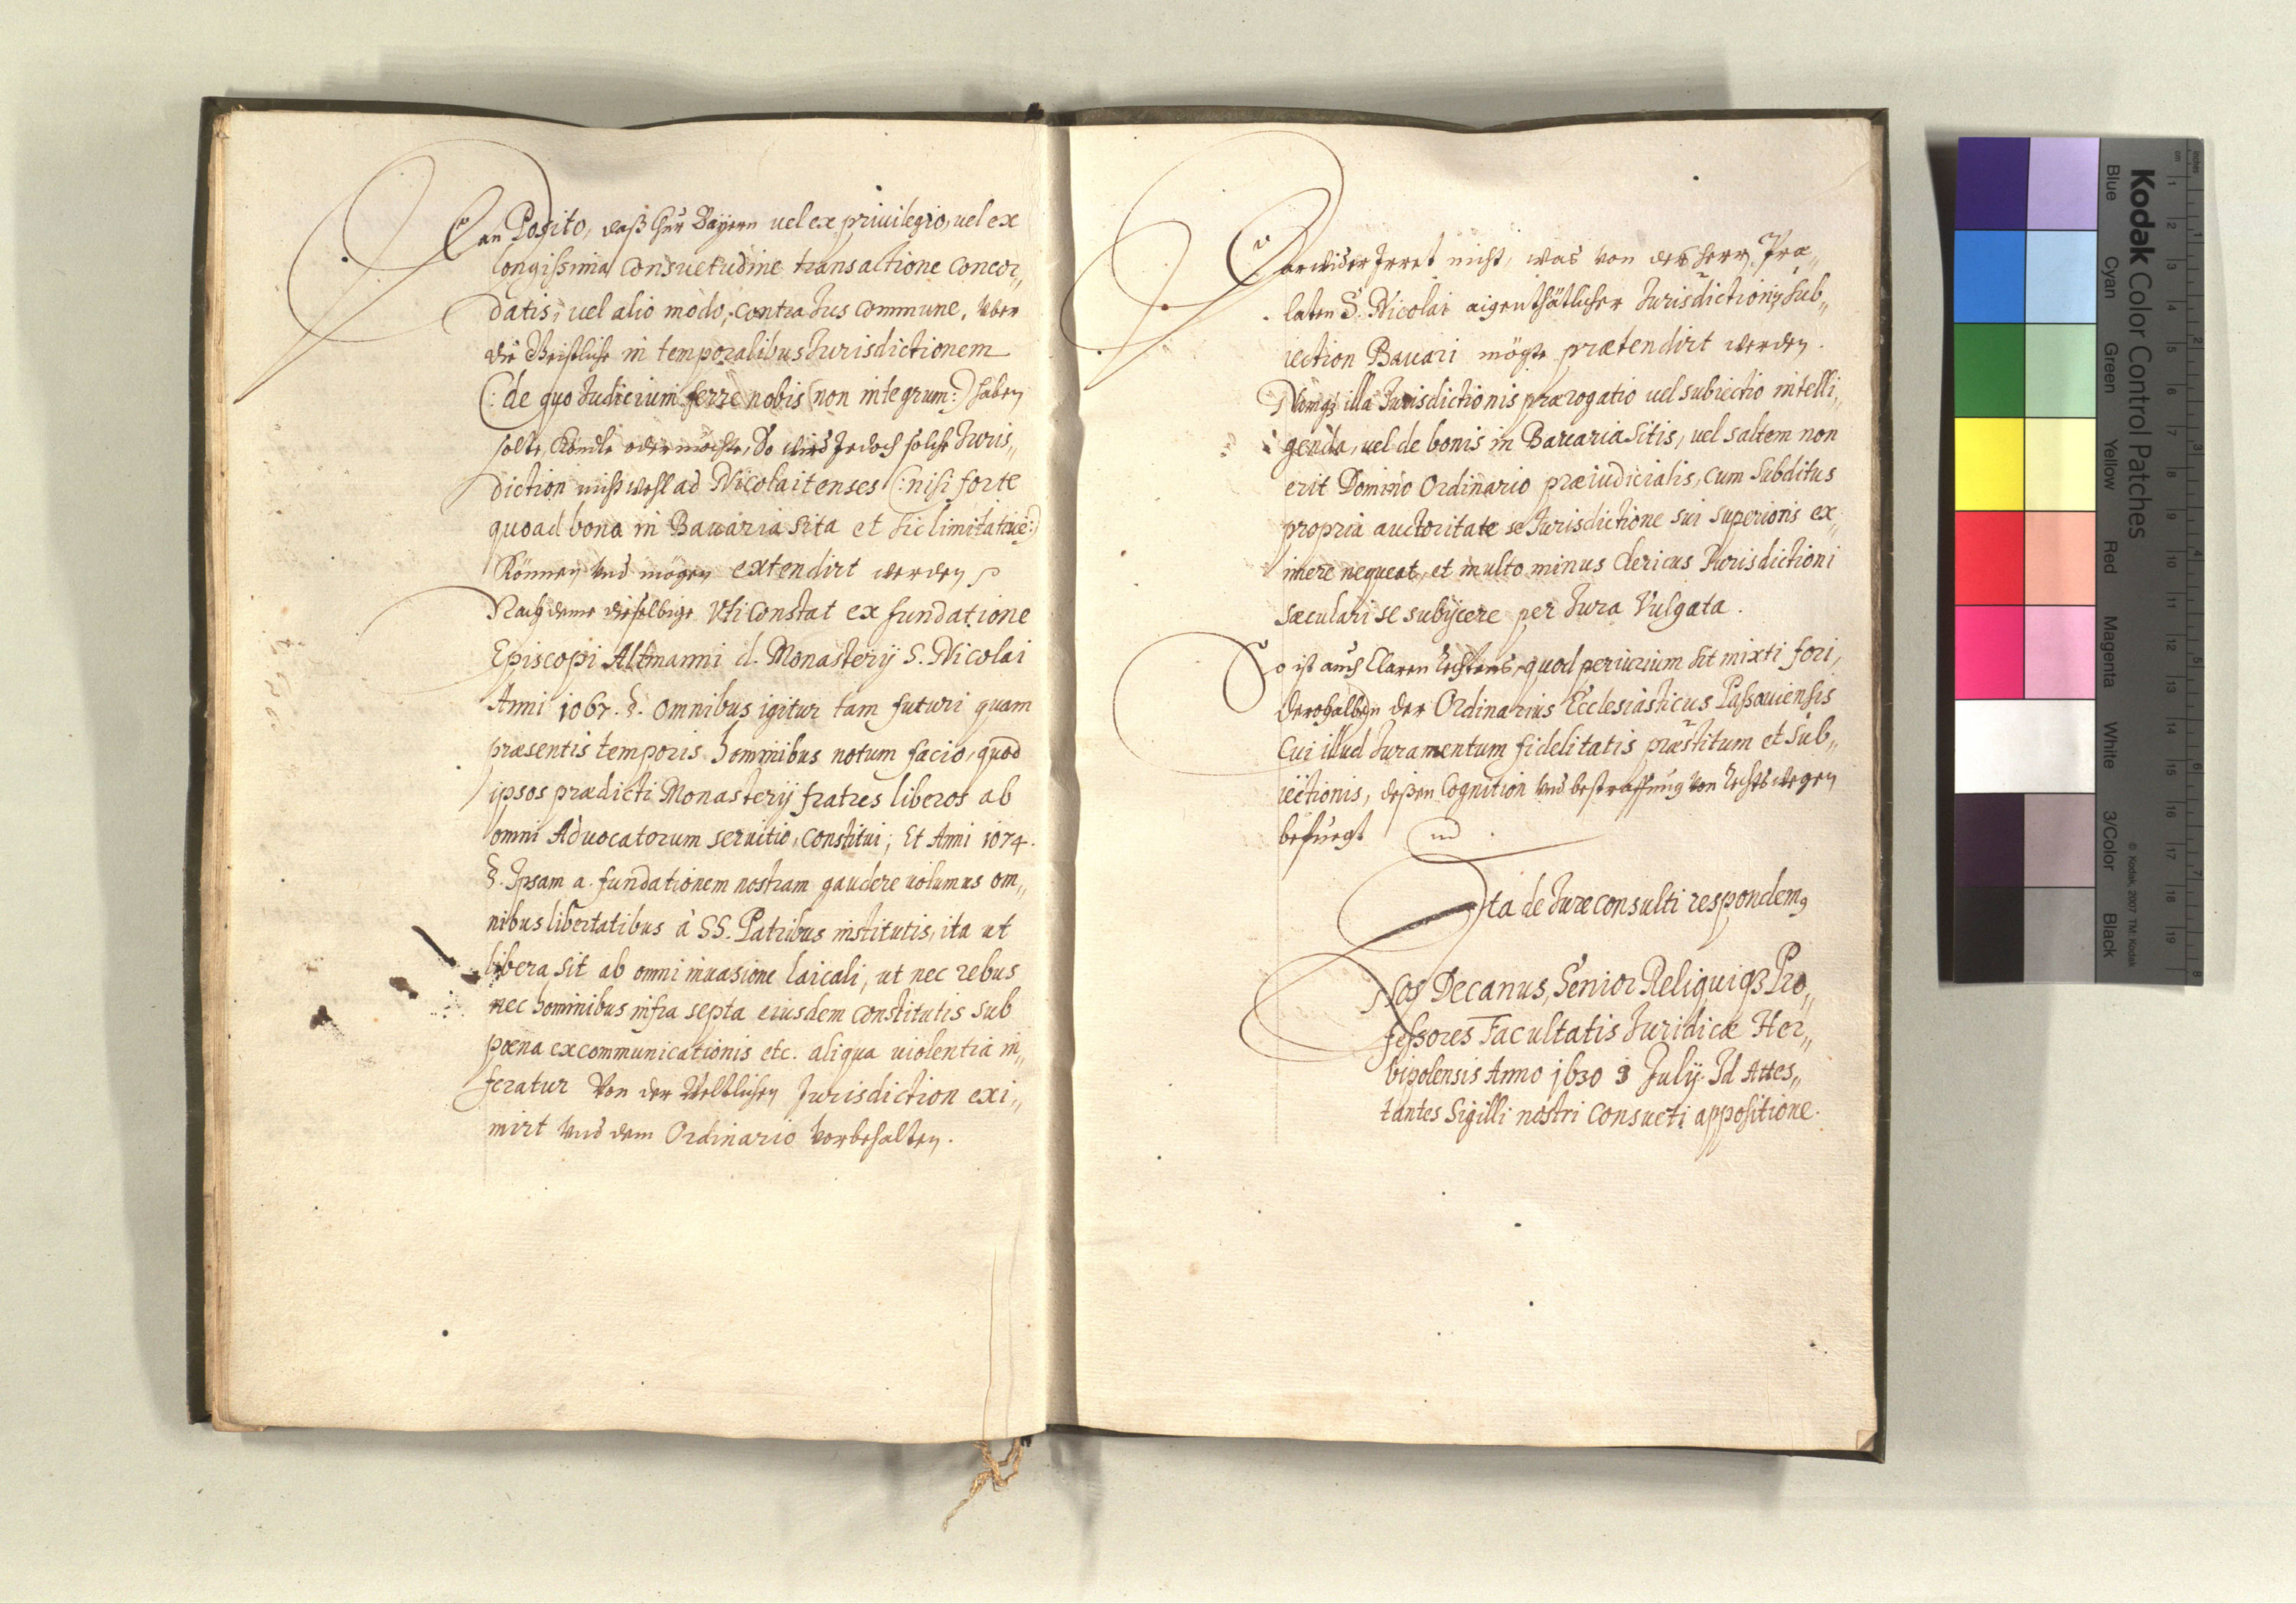 Dan Posito, daß Chur Bayern uel ex priuilegio, uel ex
longissima consuetudine transactione concor„
datis, uel alio modo, contra Jus commune, vber
die Geistliche in temporalibus Jurisdictionem
(: de quo Judicium ferre nobis non integrum :) haben
solte, Köndte oder möchte, So wird Jedoch solche Juris„
diction nicht wohl ad Nicolaitenses (: nisi forte
quoad bona in Bauaria sita et sic limitatiue :)
Können vnd mögen extendirt werden
Nachdeme dieselbige vti constat ex fundatione
Episcopi Altmanni d. Monasterij S. Nicolai
Anni 1067. §. omnibus igitur tam futuri quam
præsentis temporis hominibus notum facio, quod
ipsos prædicti Monasterij fratres liberos ab
omni Aduocatorum seruitio, constitui; Et Anni 1074.
§. Ipsam a. fundationem nostram gaudere uolumus om„
nibus libertatibus à SS. Patribus institutis, ita ut
libera sit ab omni inuasione laicali, ut nec rebus
nec hominibus infra septa eiusdem constitutis sub
pœna excommunicationis etc. aliqua uiolentia in„
feratur Von der Weltlichen Jurisdiction exi„
mirt vnd dem Ordinario vorbehalten.
Darwider Irret nicht, was von des Herrn Præ„
laten S. Nicolai aigenthätlicher Jurisdictionis sub„
iection Bauari mögte prætendirt werden.
Namq3 illa Jurisdictionis prærogatio uel subiectio intelli„
genda, uel de bonis in Bauaria sitis, uel saltem non
erit Domino Ordinario præiudicialis, cum subditus
propria auctoritate se Jurisdictione sui superioris ex„
imere nequeat, et multo minus clericus Jurisdictioni
sæculari se subijcere per Jura Vulgata.
So ist auch Claren Rechtens, quod periurium sit mixti fori,
derohalben der Ordinarius Ecclesiasticus Passauiensis
Cui illud Juramentum fidelitatis præstitum et sub„
iectionis, deßen Cognition vnd bestraffung von Rechts wegen
befuegt
Ita de Jure consulti respondem9
Nos Decanus, Senior Reliquiq3 Pro„
fessores Facultatis Juridicæ Her„
bipolensis Anno 1630 3 Julij. Id Attes„
tantes Sigilli nostri consueti appositione.
Kodak Color Control Patches
© Kodak, 2007 TM: Kodak
Blue Cyan Green Yellow Red Magenta White 3/Color Black
inches 1 2 3 4 5 6 7 8
cm 1 2 3 4 5 6 7 8 9 10 11 12 13 14 15 16 17 18 19